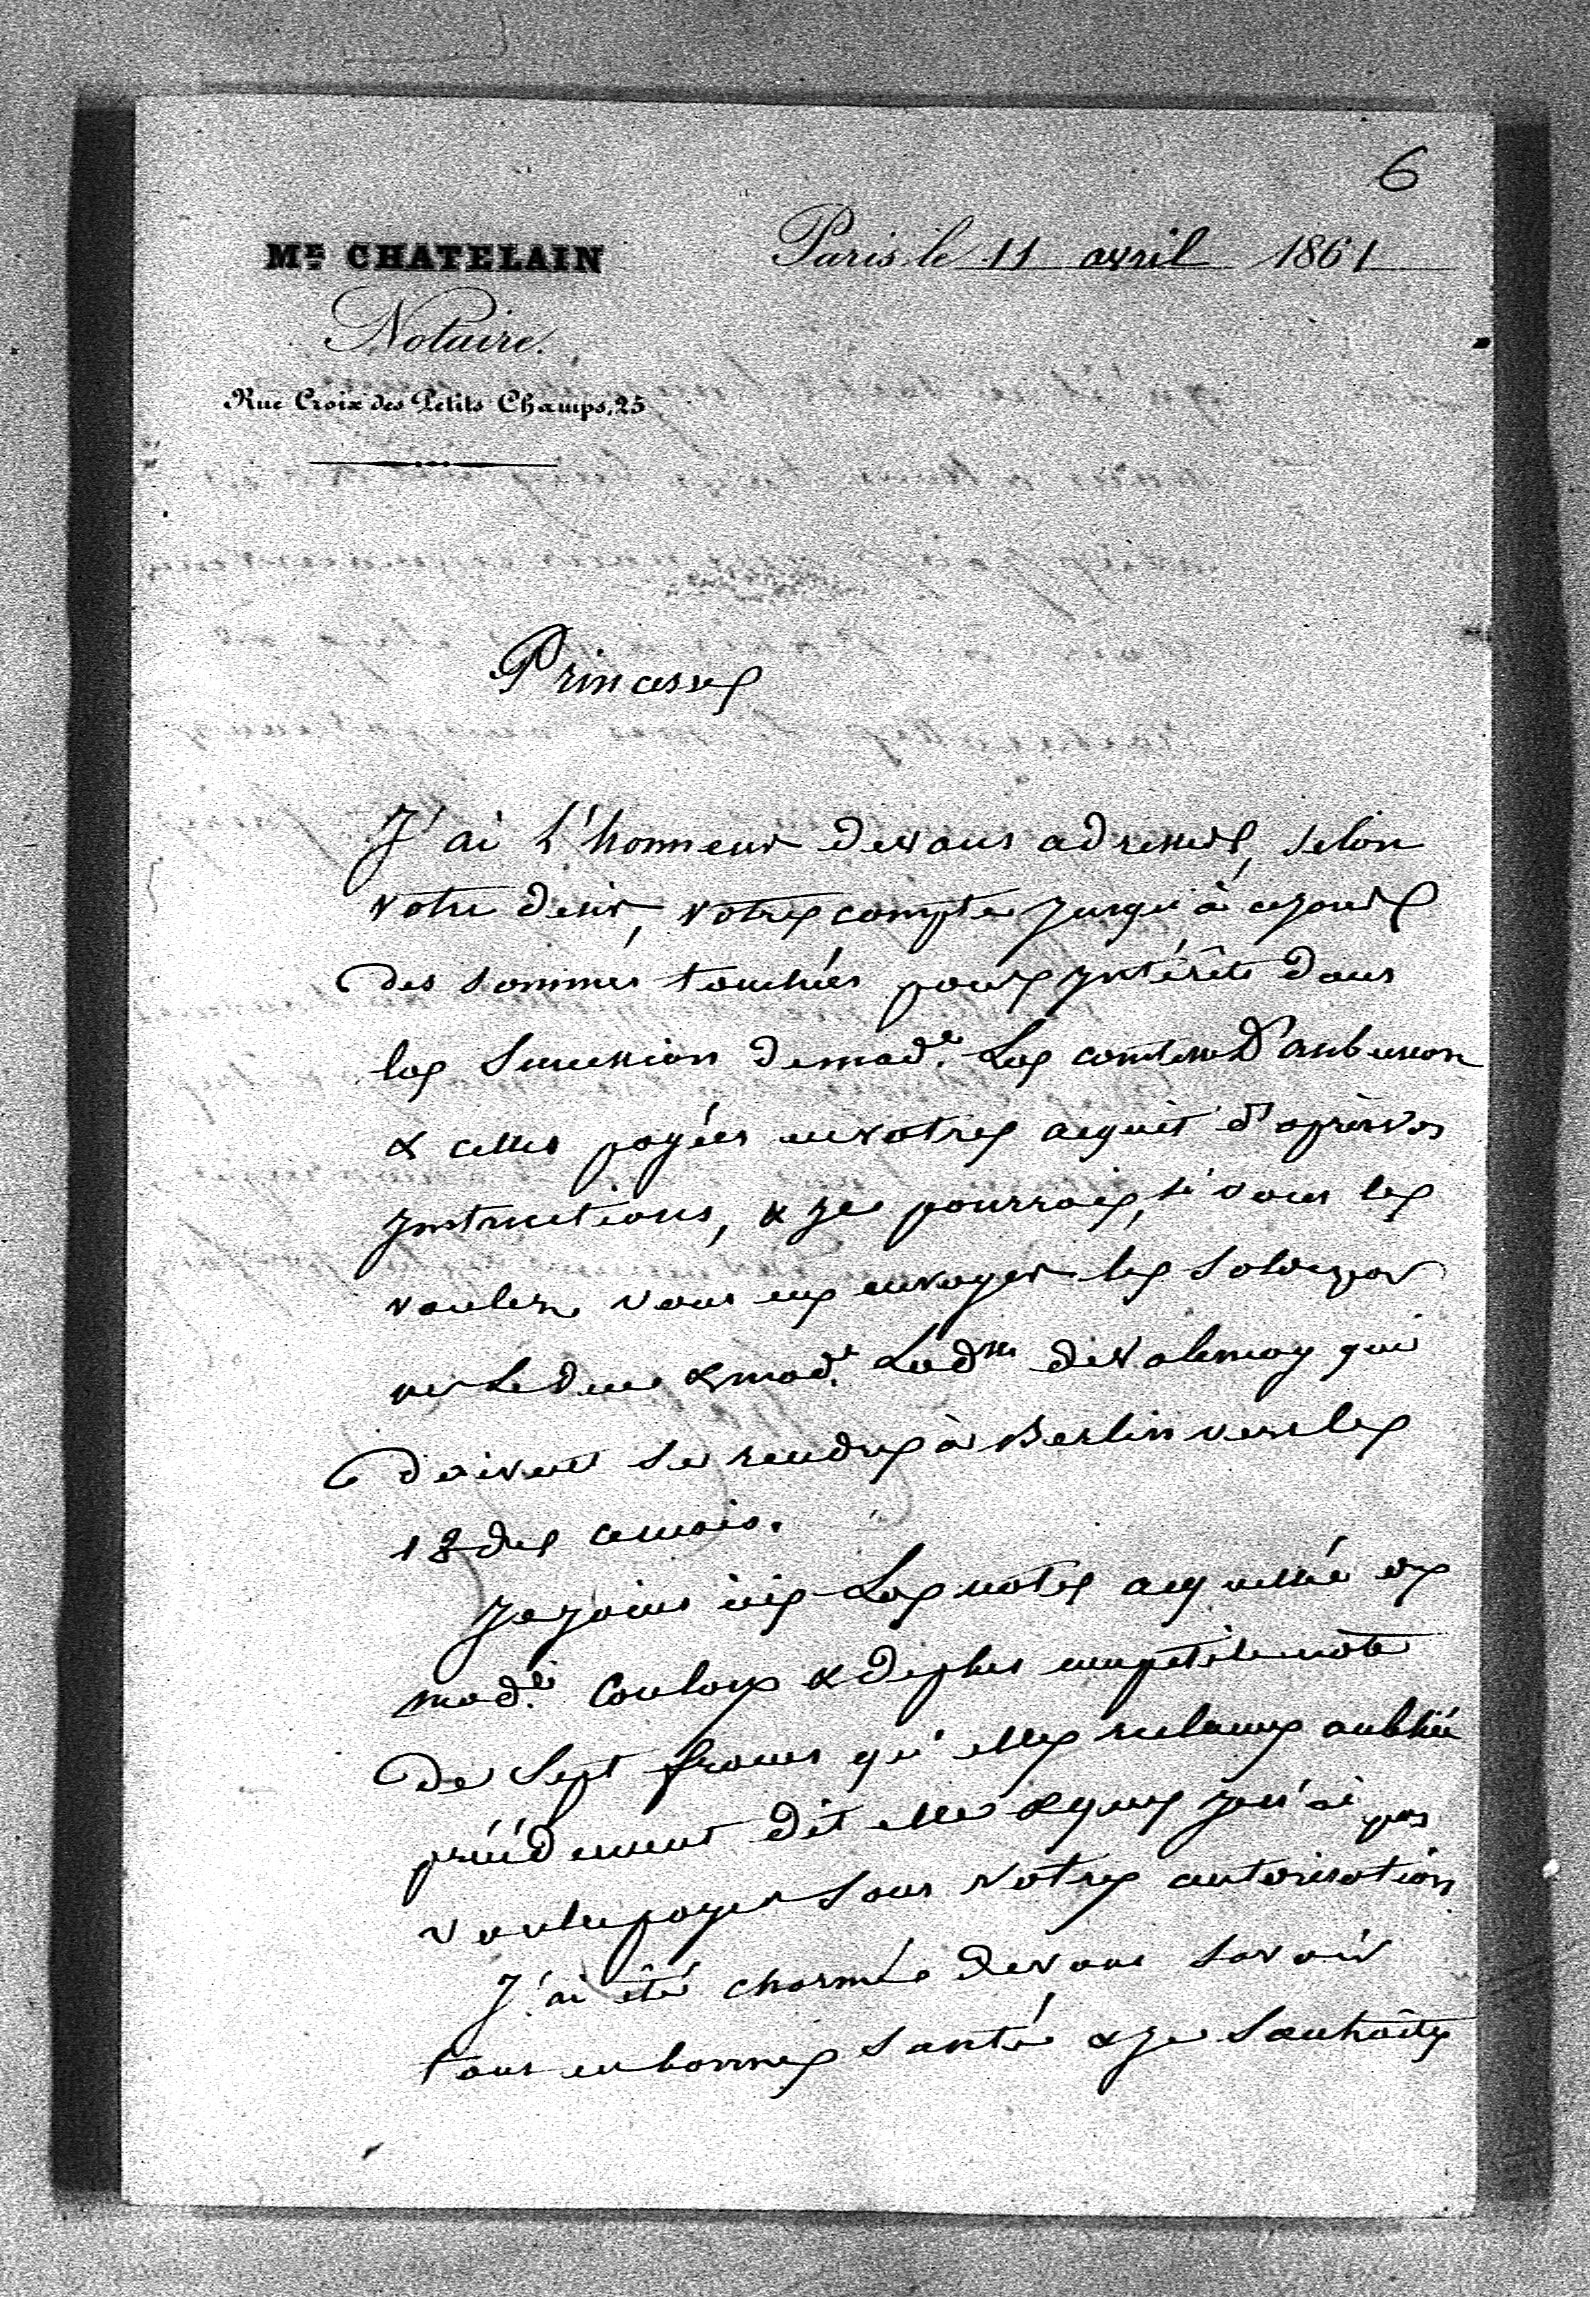 6
Me CHATELAIN
Paris, le 11 avril 1861
Notaire.
Rue Croix des Petits Champs, 25
Princesse
J'ai l'honneur de vous adresser, selon
votre désir, votre compte jusqu'à ce jour
des sommes touchées pour intérêts dans
la succession de made. La comtesse D'aubusson
& celles payées en votre acquit d'après vos
instructions, & je pourrais, si vous le
voulez vous en envoyer le solde par
mr Le duc & made. La dsse de Valençay qui
doivent se rendre à Berlin vers le
18 de ce mois.
Je joins ici La note acquittée de
made. Coulon & de plus une petite note
de Sept francs qu'elle réclame oubliée
précédemment dit elle & que je n'ai pas
voulu payer sans votre autorisation.
J'ai été charmé de vous savoir
tous en bonne santé & je souhaite